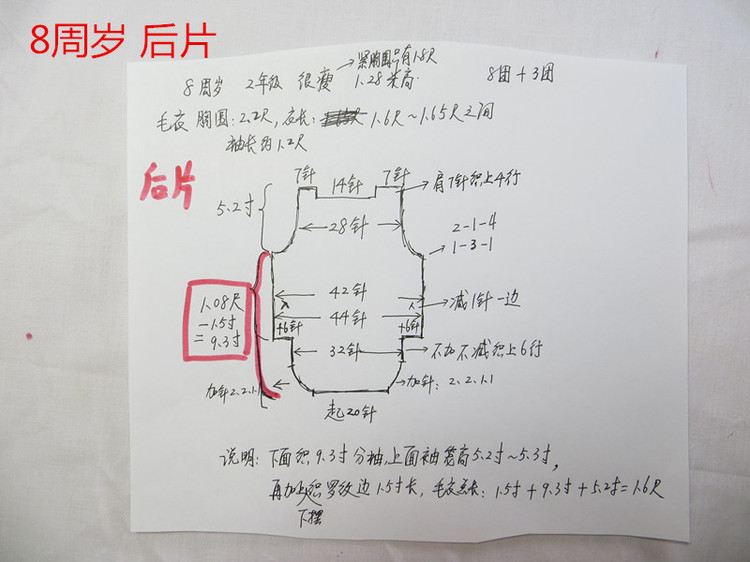 8周岁 后片
→紧胸围只有1.8尺
8周岁 2年级 很瘦 1.28米高. 8团+3团
毛衣 胸围:2.2尺,衣长: 1.6尺~1.65尺之间
袖长约1.2尺
后片
7针 14针 7针
肩7针织上4行
5.2寸
28针
2-1-4
1-3-1
42针
减1针一边
44针
+6针 +6针
1.08尺
-1.5寸
=9.3寸
32针
不加不减织上6行
加针2.2.1.1
加针:2.2.1.1
起20针
说明:下面织9.3寸分袖,上面袖笼高5.2寸~5.3寸,
再加上织罗纹边1.5寸长,毛衣总长:1.5寸+9.3寸+5.2寸=1.6尺
下摆